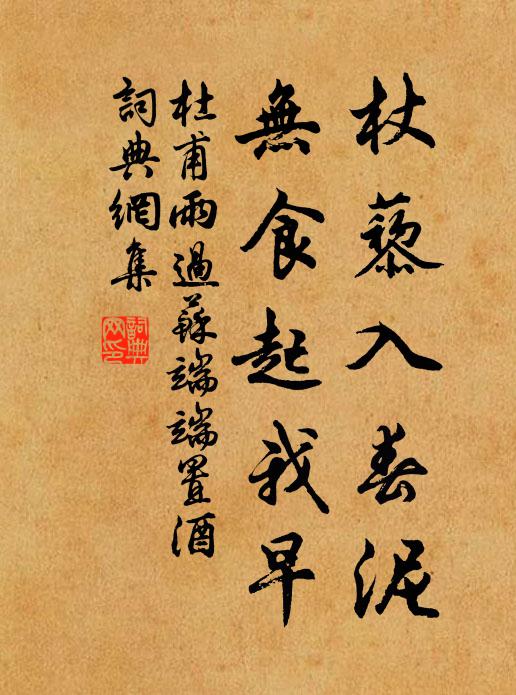 杖藜入春泥
無食起我早
杜甫雨過蘇端端置酒
詞典網集
詞典網印